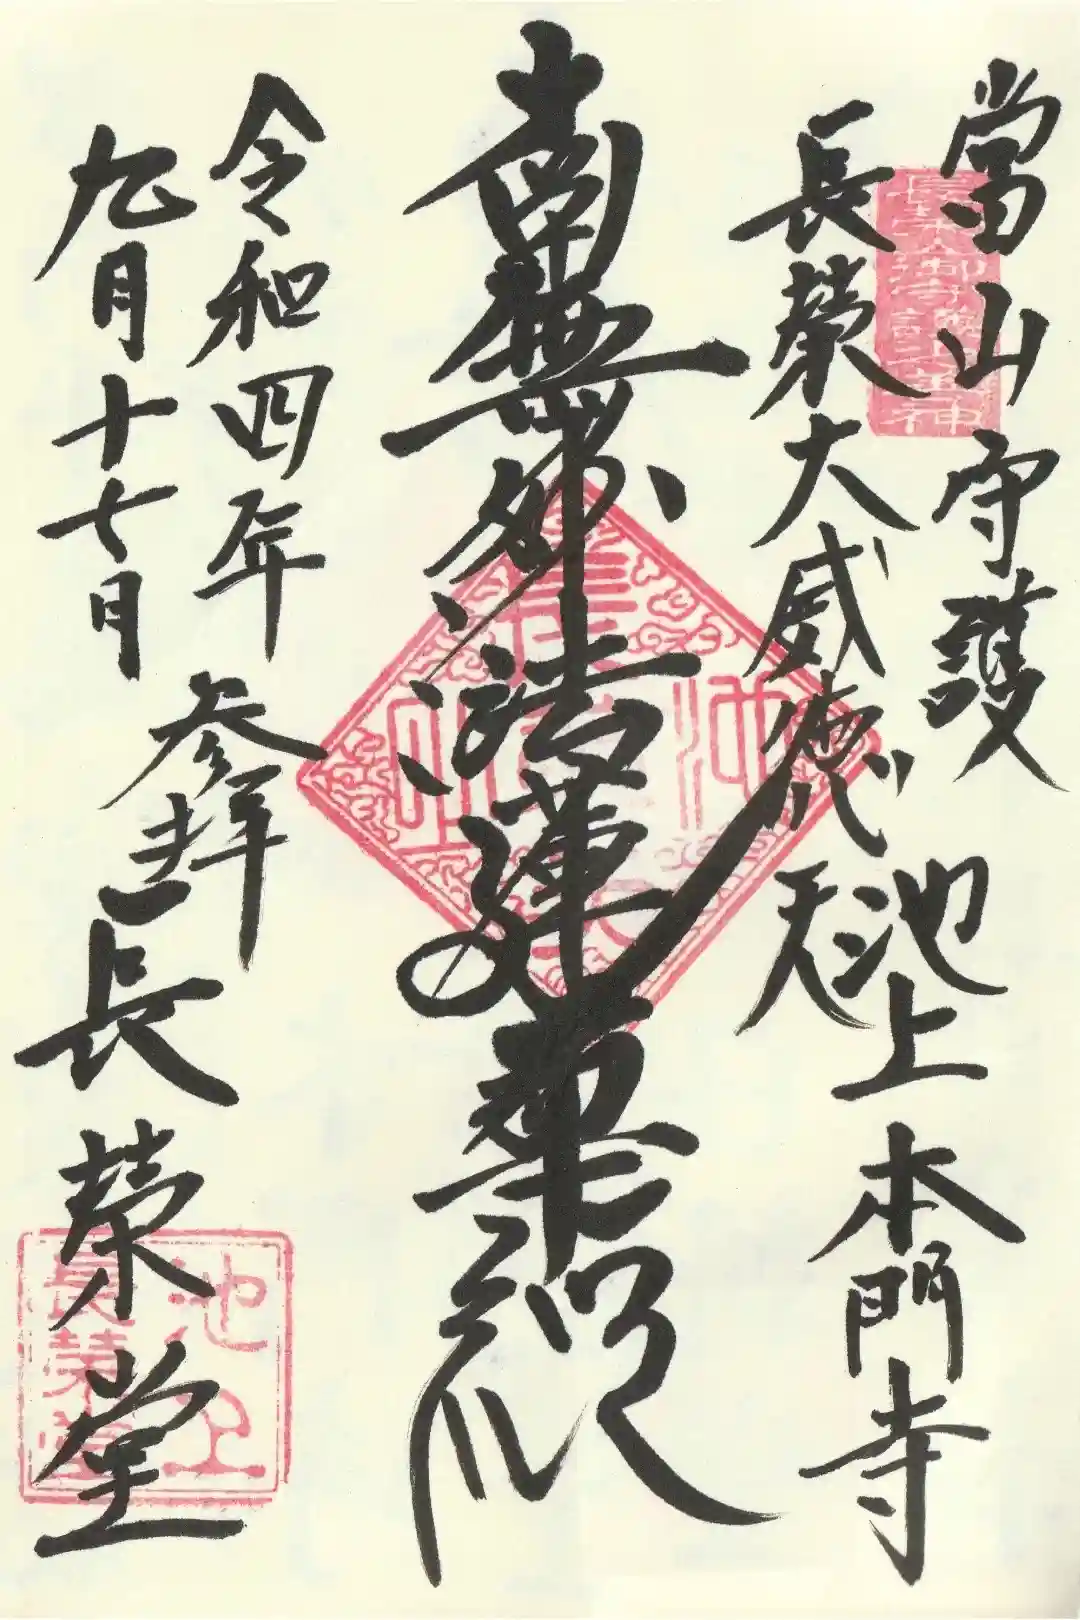 當山守護
長榮大威徳天
池上本門寺
南無妙法蓮華経
令和四年
九月十七日
参拝
長榮堂
池上
長榮堂